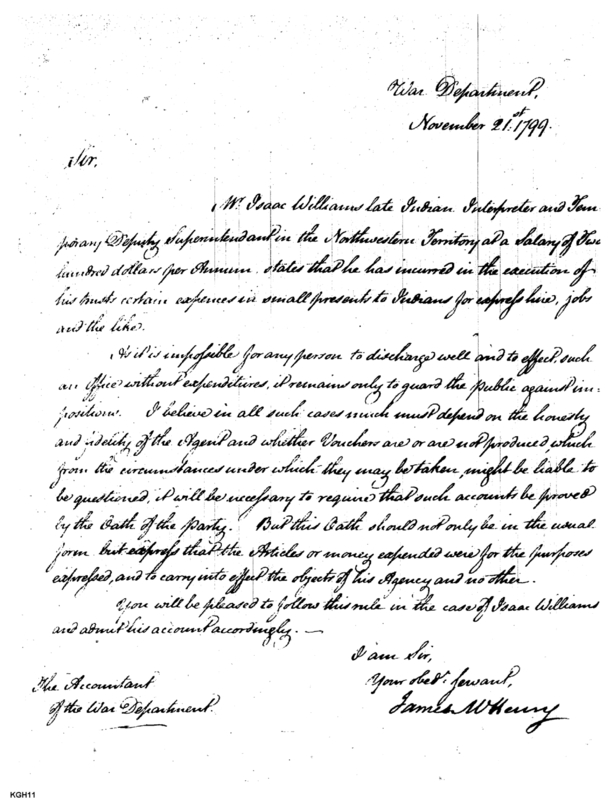 War Department,
November 21st. 1799.
Sir,
Mr. Isaac Williams late Indian Interpreter and Tem
porary Deputy Superintendant in the Northwestern Territory at a Salary of Two
hundred dollars per Annum states that he has incurred in the execution of
his trusts certain expences in small presents to Indians for express hire, jobs
and the like.
As it is impossible for any person to discharge well and to effect such
an Office without expenditures, it remains only to guard the Public against im=
positions. I believe in all such cases much must depend on the honesty
and fidelity of the Agent and whether Vouchers are or are not produced, which
from the circumstances under which they may be taken, might be liable to
be questioned, it will be necessary to require that such accounts be proved
by the Oath of the Party. But this Oath should not only be in the usual
form but express that the Articles or money expended were for the purposes
expressed, and to carry into effect the objects of his Agency and no other.
You will be pleased to follow this rule in the case of Isaac Williams
and admit his account accordingly.—
I am Sir,
Your obedt. servant,
James McHenry
The Accountant
of the War Department.
KGH11